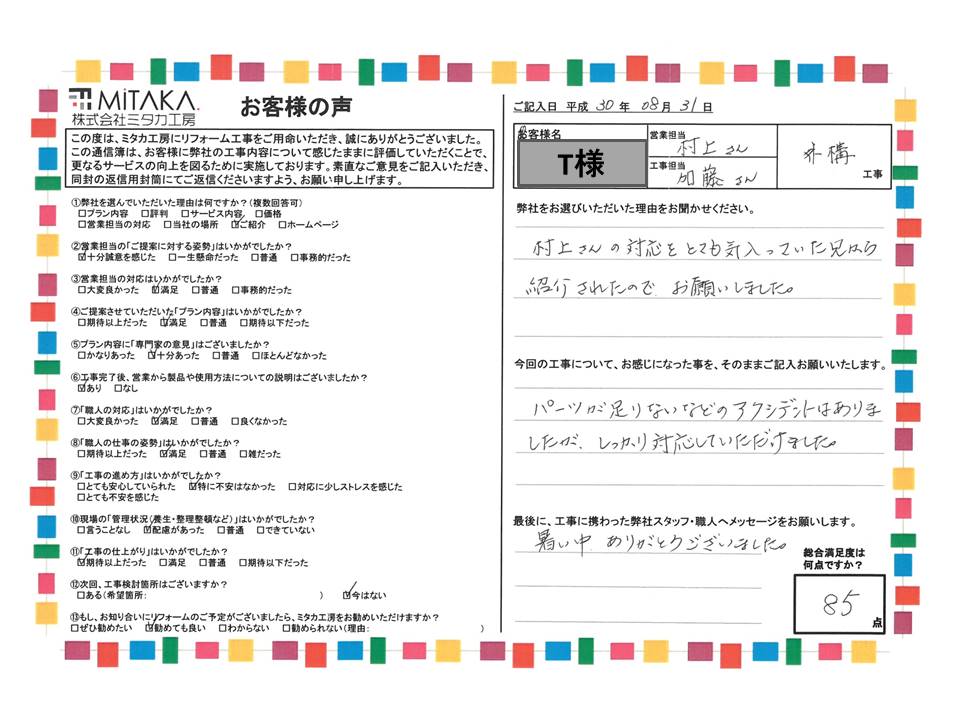 MiTAKA.
株式会社ミタカ工房
お客様の声
この度は、ミタカ工房にリフォーム工事をご用命いただき、誠にありがとうございました。
この通信簿は、お客様に弊社の工事内容について感じたままに評価していただくことで、
更なるサービスの向上を図るために実施しております。素直なご意見をご記入いただき、
同封の返信用封筒にてご返信くださいますよう、お願い申し上げます。
①弊社を選んでいただいた理由は何ですか?(複数回答可)
□プラン内容 □評判 □サービス内容 □価格
□営業担当の対応 □当社の場所 ☑ご紹介 □ホームページ
②営業担当の「ご提案に対する姿勢」はいかがでしたか?
☑十分誠意を感じた □一生懸命だった □普通 □事務的だった
③営業担当の対応はいかがでしたか?
□大変良かった ☑満足 □普通 □事務的だった
④ご提案させていただいた「プラン内容」はいかがでしたか?
□期待以上だった ☑満足 □普通 □期待以下だった
⑤プラン内容に「専門家の意見」はございましたか?
□かなりあった ☑十分あった □普通 □ほとんどなかった
⑥工事完了後、営業から製品や使用方法についての説明はございましたか?
☑あり □なし
⑦「職人の対応」はいかがでしたか?
□大変良かった ☑満足 □普通 □良くなかった
⑧「職人の仕事の姿勢」はいかがでしたか?
□期待以上だった ☑満足 □普通 □雑だった
⑨「工事の進め方」はいかがでしたか?
□とても安心していられた ☑特に不安はなかった □対応に少しストレスを感じた
□とても不安を感じた
⑩現場の「管理状況(養生・整理整頓など)」はいかがでしたか?
□言うことなし ☑配慮があった □普通 □できていない
⑪「工事の仕上がり」はいかがでしたか?
☑期待以上だった □満足 □普通 □期待以下だった
⑫次回、工事検討箇所はございますか?
□ある(希望箇所: ) ☑今はない
⑬もし、お知り合いにリフォームのご予定がございましたら、ミタカ工房をお勧めいただけますか?
□ぜひ勧めたい ☑勧めても良い □わからない □勧められない(理由: )
ご記入日 平成 30 年 08 月 31 日
お客様名
T様
営業担当
村上 さん
工事担当
加藤 さん
外構
工事
弊社をお選びいただいた理由をお聞かせください。
村上さんの対応をとても気入っていた兄から
紹介されたので お願いしました。
今回の工事について、お感じになった事を、そのままご記入お願いいたします。
パーツが足りないなどのアクシデントはありま
したが、しっかり対応していただけました。
最後に、工事に携わった弊社スタッフ・職人へメッセージをお願いします。
暑い中 ありがとうございました。
総合満足度は
何点ですか?
85
点